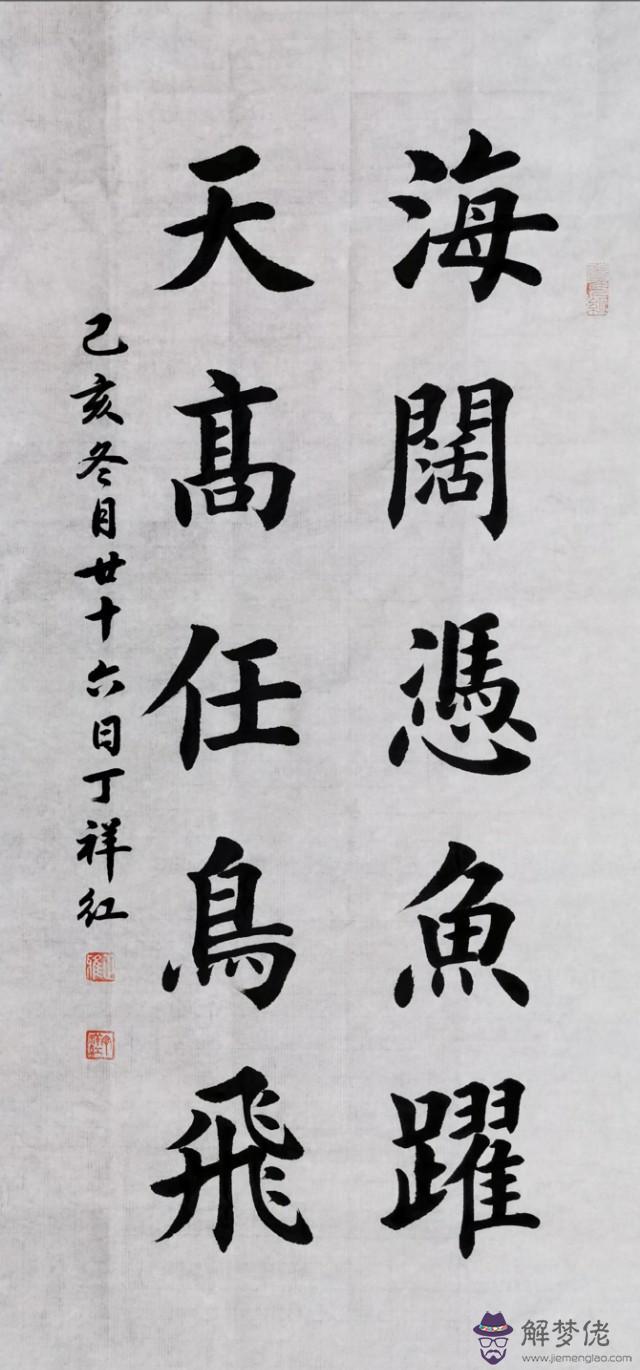 海闊憑魚躍
天高任鳥飛
己亥冬月廿十六日丁祥红
解梦佬
www.jiemenglao.com